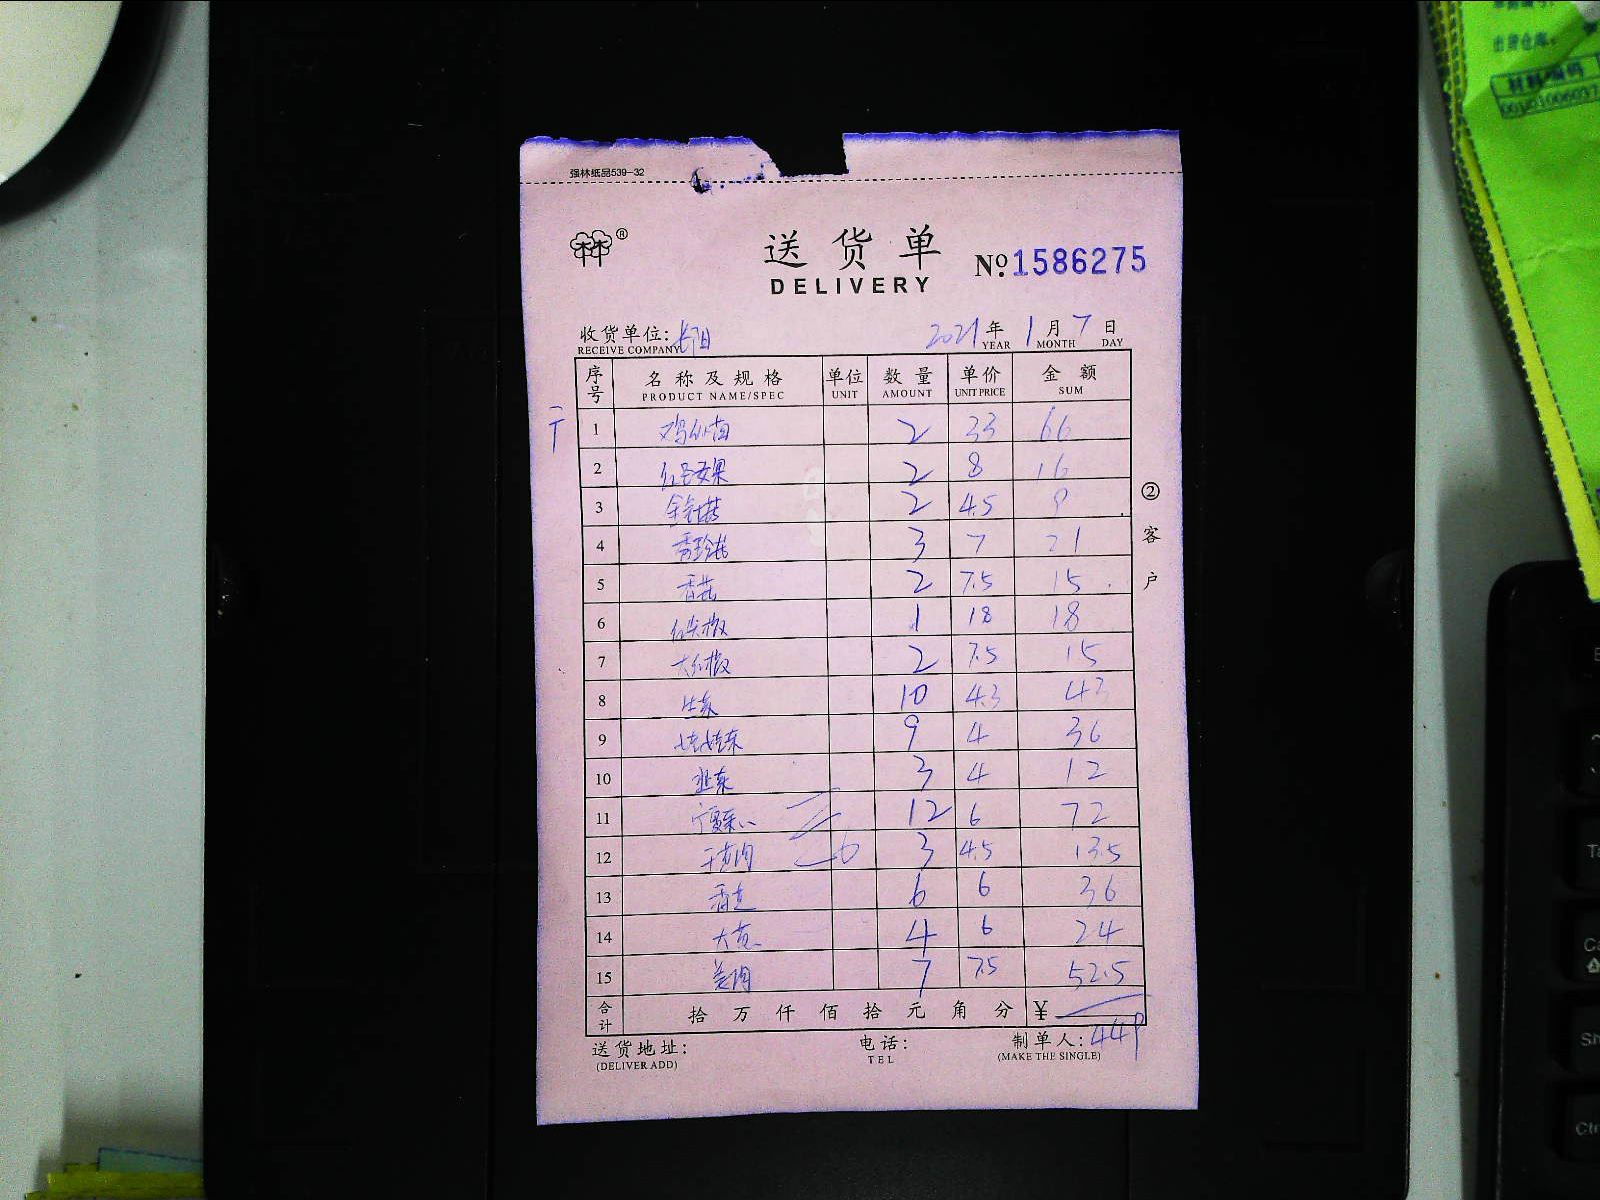 强林纸品539-32
送货单
DELIVERY
№ 1586275
收货单位: 长阳 2021年1月7日
RECEIVE COMPANY YEAR MONTH DAY
序号 名称及规格 单位 数量 单价 金额
PRODUCT NAME/SPEC UNIT AMOUNT UNIT PRICE SUM
1 2 33 66
2 2 8 16
3 金针菇 2 4.5 9
4 秀珍菇 3 7 21
5 香菇 2 7.5 15
6 红尖椒 1 18 18
7 大红椒 2 7.5 15
8 生菜 10 4.3 43
9 娃娃菜 9 4 36
10 韭菜 3 4 12
11 12 6 72
12 3 4.5 13.5
13 6 6 36
14 4 6 24
15 7 7.5 52.5
合计 拾 万 仟 佰 拾 元 角 分 ¥
449
送货地址: 电话: 制单人:
(DELIVER ADD) TEL (MAKE THE SINGLE)
② 客户
出货仓库:
材料编码